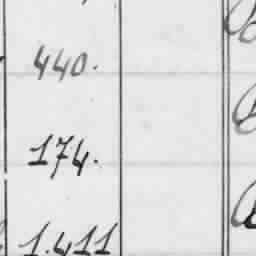 440.
174.
1.411